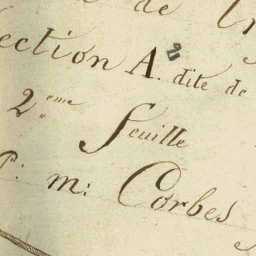 de
ection A. 2 dite de
2.eme Feuille
P: m: Corbes